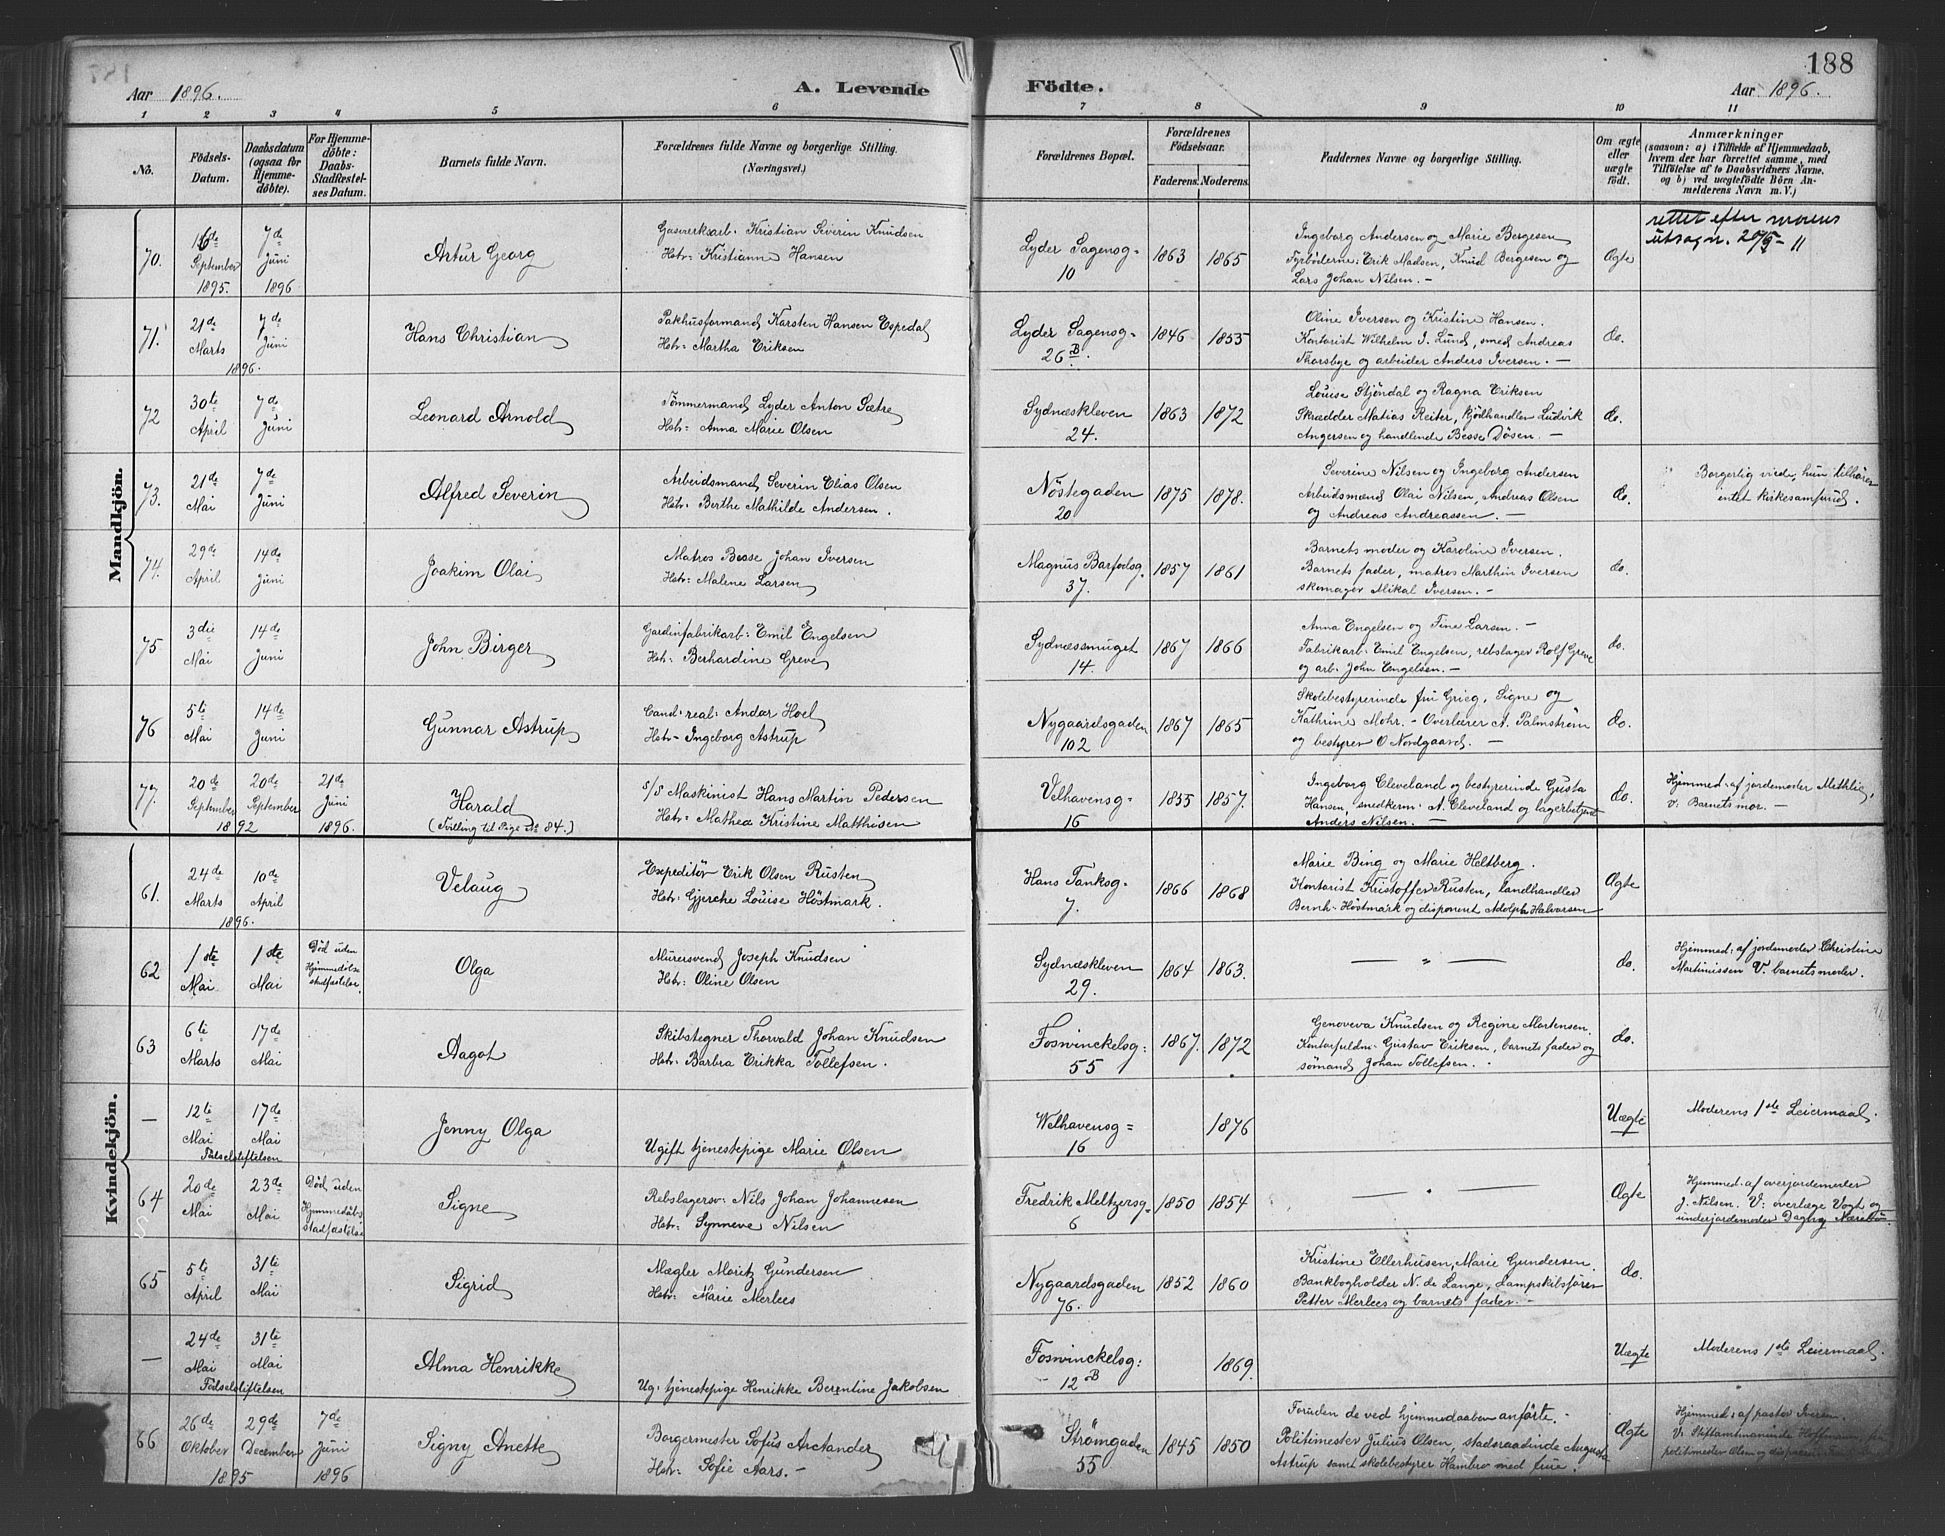 188
Aar 1896. A. Levende Födte. Aar 1896.
1 2 3 4 5 6 7 8 9 10 11
No.
Födsels-Datum.
Daabsdatum (ogsaa for Hjemmedöbte).
For Hjemmedöbte: Daabs-Stadfæstelses Datum.
Barnets fulde Navn.
Forældrenes fulde Navne og borgerlige Stilling. (Næringsvei.)
Forældrenes Bopæl.
Forældrenes Födselsaar.
Faderens. Moderens.
Faddernes Navne og borgerlige Stilling.
Om ægte eller uægte födt.
Anmærkninger
(saasom: a) i Tilfælde af Hjemmedaab,
hvem der har forrettet samme, med
Tilföielse af to Daabsvidners Navne,
og b) ved uægtefödte Börn Anmelderens Navn m. V.)
Mandkjön.
70. 16de September 1895. 7de Juni 1896
Artur Georg
Gasverksarb: Kristian Severin Knudsen
Hstr: Kristianne Hansen
Lyder Sagensg= 10
1863 1865
Ingeborg Andersen og Marie Bergesen
Fyrböderne: Erik Madsen, Knud Bergesen og
Lars Johan Nilsen. –
Ægte
rettet efter morens
utsagn. 20/9-11
71. 21de Marts 7de Juni 1896.
Hans Christian
Pakhusformand Karsten Hansen Espedal
Hstr: Martha Eriksen
Lyder Sagensg= 26B.
1846 1855
Oline Iversen og Kristine Hansen.
Kontorist Wilhelm J. Lund, smed Andreas
Thorsbye og arbeider Anders Iversen. –
do.
72 30te April 7de Juni
Leonard Arnold
Tömmermand Lyder Anton Sætre
Hstr: Anna Marie Olsen
Sydnæskleven 24.
1863 1872
Louise Stjöndal og Ragna Eriksen
Skrædder Matias Reiter, kjödhandler Ludvik
Angersen og handlende Besse Dösen. –
do.
73. 21de Mai 7de Juni
Alfred Severin
Arbeidsmand Severin Elias Olsen
Hstr: Berthe Mathilde Andersen.
Nöstegaden 20
1875 1878.
Severine Nilsen og Ingeborg Andersen
Arbeidsmænd Olai Nilsen, Andreas Olsen
og Andreas Andreassen. –
do.
Borgerlig viede, hun tilhörer
intet kirkesamfund.
74. 29de April 14de Juni
Joakim Olai
Matros Besse Johan Iversen
Hstr: Malene Larsen
Magnus Barfodsg. 37.
1857 1861
Barnets moder og Karoline Iversen.
Barnets fader, matros Marthin Iversen
skomager Mikal Iversen. –
do.
75 3die Mai 14de Juni
John Birger
Gardinfabrikarb: Emil Engelsen
Hstr: Berhardine Greve
Sydnæssmuget 14.
1867 1866
Anna Engelsen og Tine Larsen. –
Fabrikarb: Emil Engelsen, rebslager Rolf Greve
og arb: John Engelsen. –
do.
76 5te Mai 14de Juni
Gunnar Astrup
Cand: real: Andar Hoel
Hstr- Ingeborg Astrup
Nygaardsgaden 102
1867 1865
Skolebestyrerinde fru Grieg, Signe og
Kathrine Mohr. – Overlærer A. Palmström
og bestyrer O Nordgaard. –
do.
77. 20de September 20de September 1892 21de Juni 1896.
Harald
(Tvilling til Pige No 84.)
S/S Maskinist Hans Martin Pedersen
Hstr: Mathea Kristine Matthisen
Velhavensg= 16
1855 1857.
Ingeborg Cleveland og bestyrerinde Gusta
Hansen snedkerm: A. Cleveland og lagerbetjent
Anders Nilsen. –
do.
Hjemmed: af jordemoder Methlie,
V. Barnets mor. –
Kvindekjön.
61. 24de Marts 10de April 1896.
Velaug
Expeditör Erik Olsen Rusten
Hstr: Gjercke Louise Höstmark.
Hans Tanksg= 7.
1866 1868
Marie Bing og Marie Heltberg.
Kontorist Kristoffer Rusten, landhandler
Bernh: Höstmark og disponent Adolph Halvorsen
Ægte
62 1ste Mai. 1ste Mai
Död uden Hjemmedöbs stadfæstelse.
Olga
Murersvend Joseph Knudsen
Hstr: Oline Olsen
Sydnæskleven 29.
1864 1863.
— „ —
do.
Hjemmed: af jordemoder Christine
Martinussen V. barnets moder.
63 6te Marts 17de Mai
Aagot
Skibstegner Thorvald Johan Knudsen
Hstr: Barbra Erikka Tollefsen.
Fosvinckelsg: 55
1867. 1872
Genoveva Knudsen og Regine Mortensen.
Kontorfuldm: Gustav Eriksen, barnets fader og
sömand Johan Tollefsen. –
do.
— 12te Mai 17de Mai
Födselsstiftelsen
Jenny Olga
Ugift tjenestepige Marie Olsen
Welhavensg= 16
1876
Uægte
Moderens 1ste Leiermaal.
64 20de Mai 23de Mai
Död uden Hjemmedöbs Stadfæstelse
Signe
Rebslagersv: Nils Johan Johannesen
Hstr: Synneve Nilsen
Fredrik Meltzersg= 6
1850 1854
— „ —
Ægte
Hjemmed: af overjordemoder
J. Nilsen. V: overlæge Vogt og
underjordemoder Dagny Næsebö.
65 5te April 31te Mai
Sigrid
Mægler Moritz Gundersen
Hstr: Marie Merlees
Nygaardsgaden 76.
1852 1860
Kristine Ellerhusen, Marie Gundersen.
Bankbogholder N. de Lange, dampskibsförer
Petter Merlees og barnets fader. –
do.
— 24de Mai 31te Mai
Födselsstiftelsen
Alma Henrikke
Ug: tjenestepige Henrikke Berentine Jakobsen
Fosvinckelsg: 12B
1869.
Uægte
Moderens 1ste Leiermaal.
66 26de Oktober 29de December 1895 7de Juni 1896
Signy Anette
Borgermester Sofus Arctander
Hstr: Sofie Aars. –
Strömgaden 55
1845 1850
Foruden de ved hjemmedaaben anförte. –
Politimester Julius Olsen, stadsraadinde Augusta
Astrup samt skolebestyrer Hambro med frue.
Ægte
Hjemmed: af pastor Iversen
V: Stiftamtmandinde Hoffmann,
politimester Olsen og